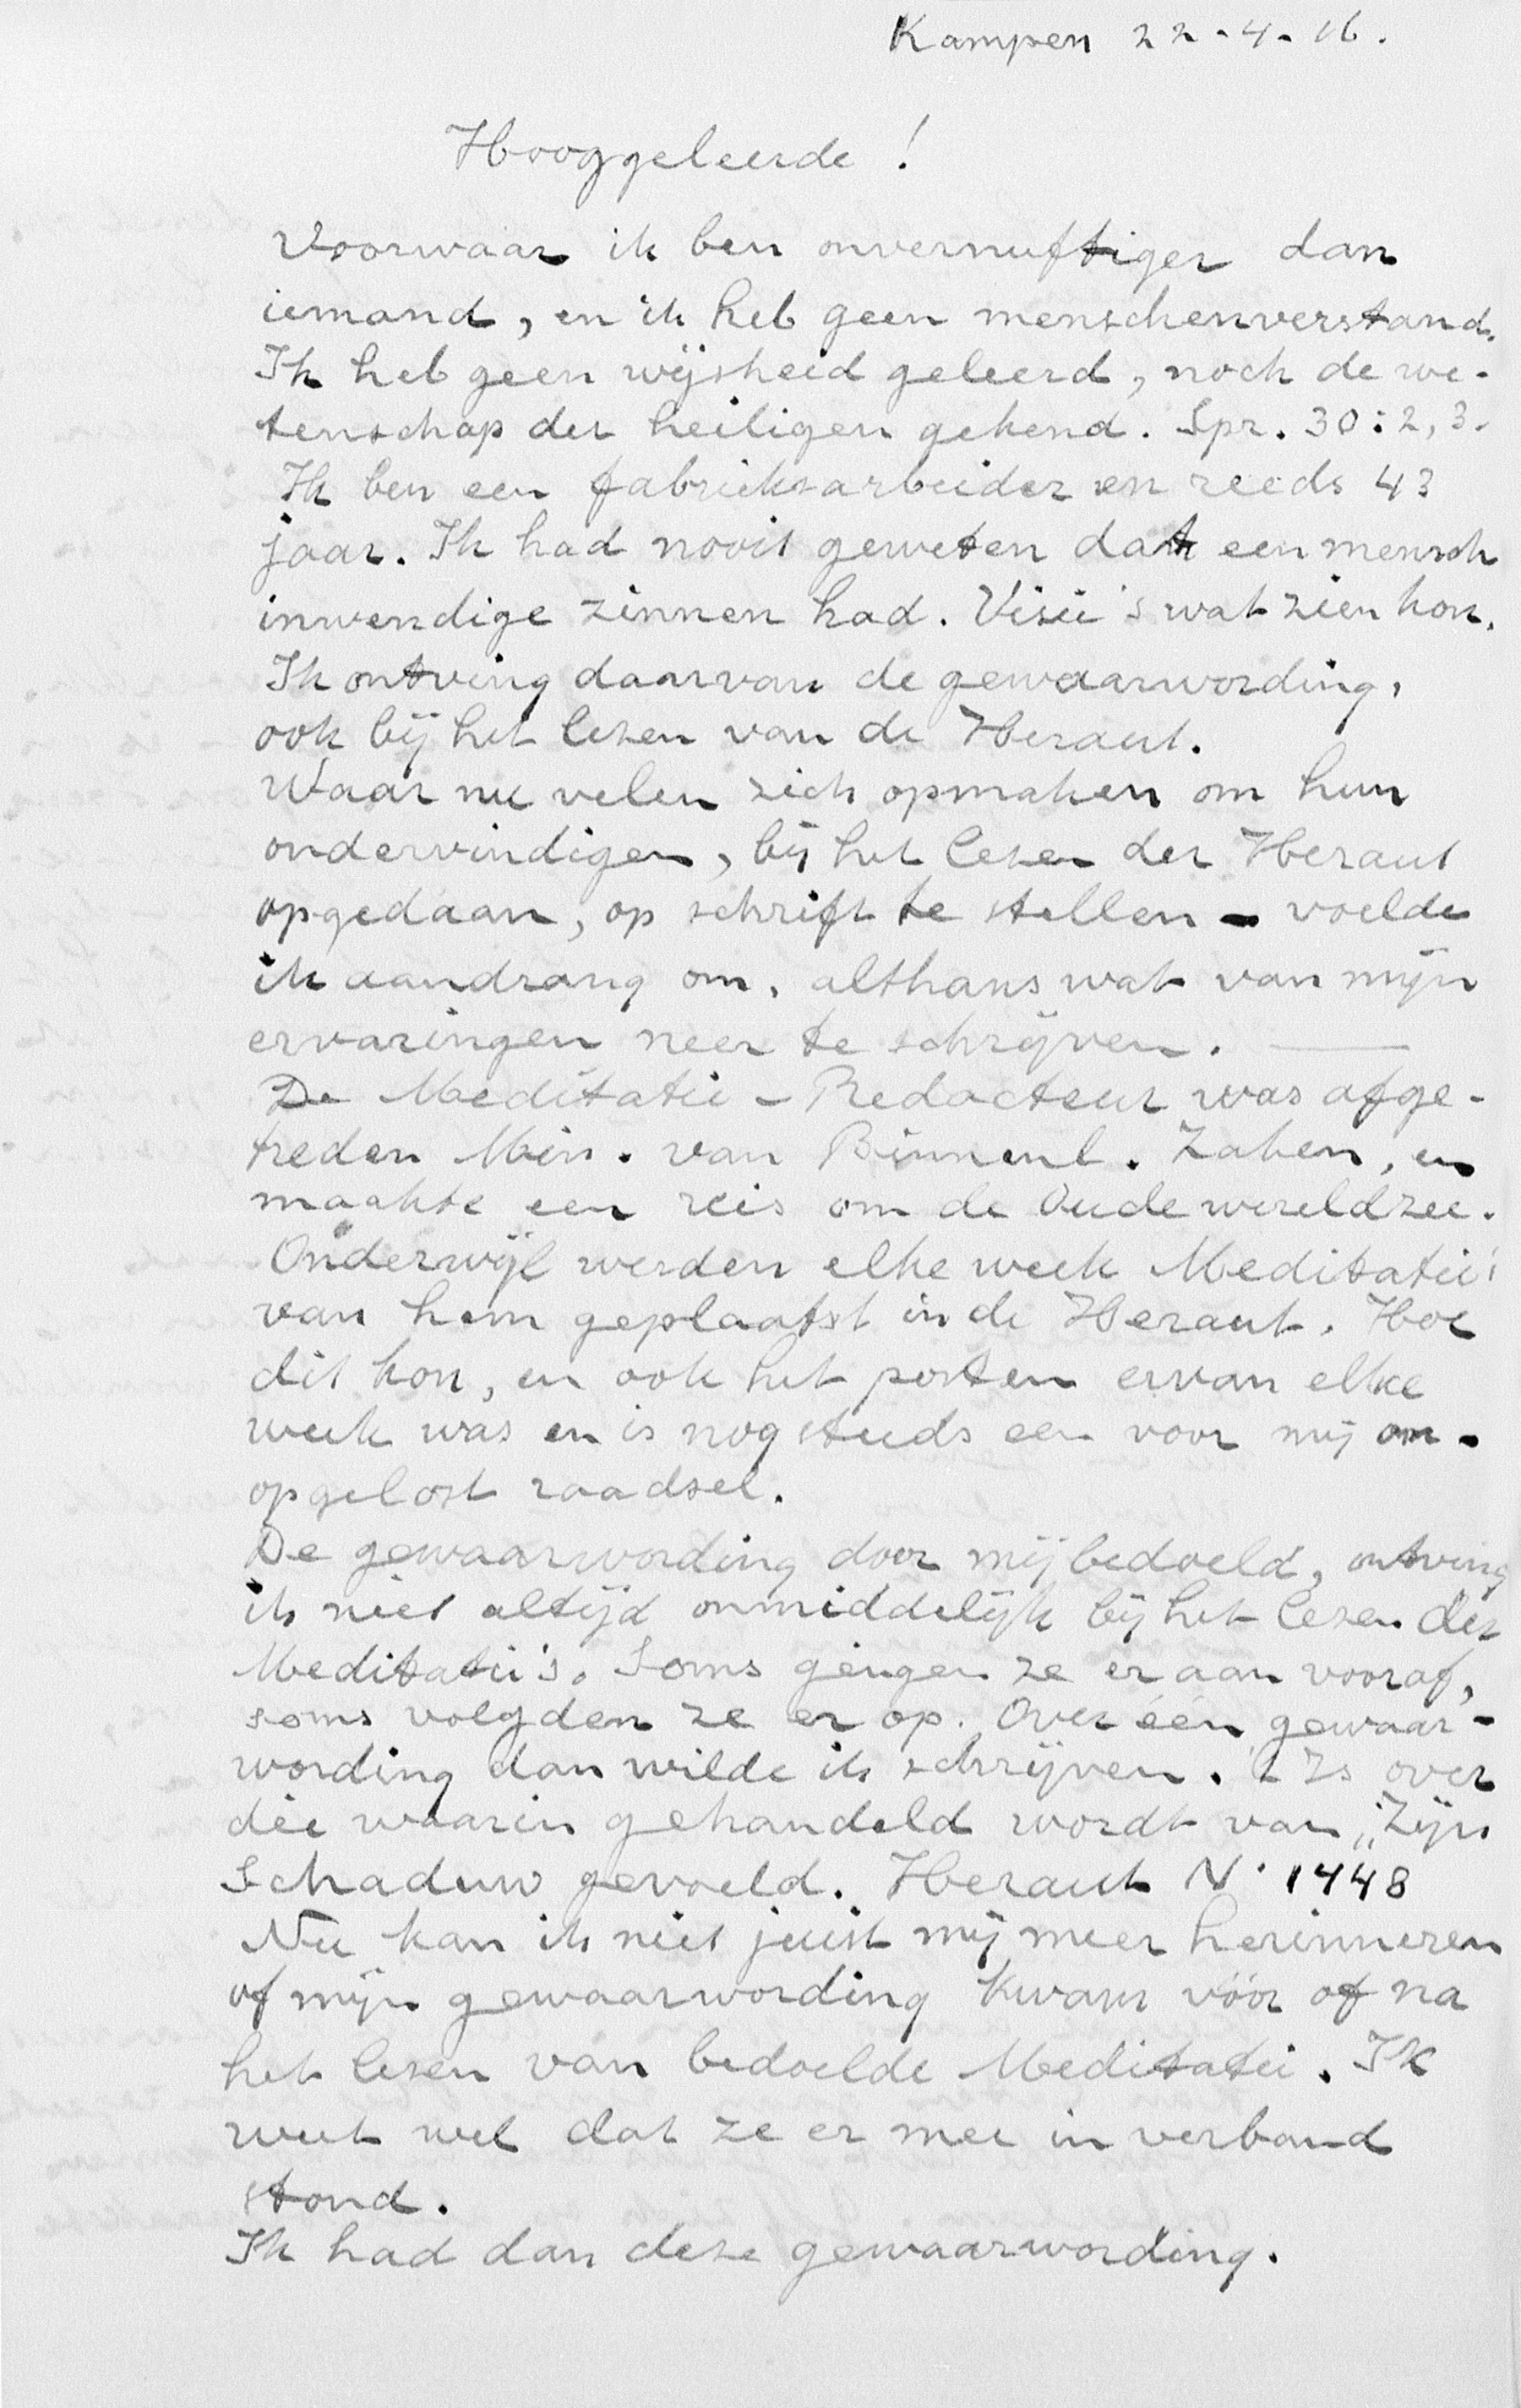 Kampen 22-4-16.
Hooggeleerde!
Voorwaar ik ben onvernuftiger dan
iemand, en ik heb geen menschenverstand.
Ik heb geen wijsheid geleerd, noch de we-
tenschap der heiligen gekend. Spr. 30:2,3.
Ik ben een fabrieksarbeider en reeds 43
jaar. Ik had nooit geweten dat een mensch
inwendige zinnen had. Visie's wat zien kon.
Ik ontving daarvan de gewaarwording,
ook bij het lezen van de Heraut.
Waar nu velen zich opmaken om hun
ondervindigen, bij het lezen der Heraut
opgedaan, op schrift te stellen - voelde
ik aandrang om, althans wat van mijn
ervaringen neer te schrijven. —
De Meditatie-Redacteur was afge-
treden Min. van Binnenl. Zaken, en
maakte een reis om de Oude wereldzee.
Onderwijl werden elke week Meditatie's
van hem geplaatst in de Heraut. Hoe
dit kon, en ook het posten ervan elke
week was en is nog steeds een voor mij on-
opgelost raadsel.
De gewaarwording door mij bedoeld, ontving
ik niet altijd onmiddelijk bij het lezen der
Meditatie's. Soms gingen ze er aan vooraf,
soms volgden ze er op. Over één gewaar-
wording dan wilde ik schrijven. 't Is over
die waarin gehandeld wordt van „Zijn
Schaduw gevoeld. Heraut N. 1448
Nu kan ik niet juist mij meer herinneren
of mijn gewaarwording kwam vóór of na
het lezen van bedoelde Meditatie. Ik
weet wel dat ze er mee in verband
stond.
Ik had dan deze gewaarwording.